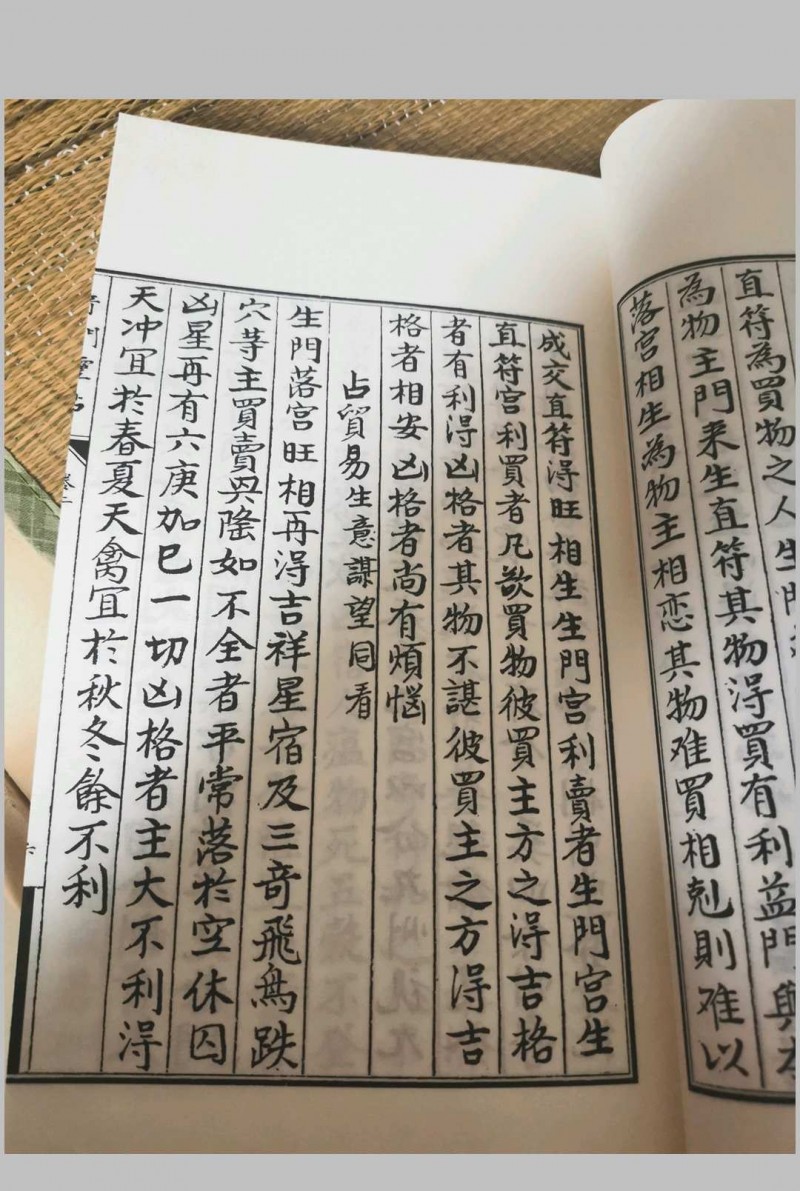 直符為買物之人生門
為物主門来生直符其物得買有利益門與本
落宫相生為物主相恋其物难買相剋則难以
成交直符得旺相生生門宫利賣者生門宫生
直符宫利買者凡欲買物彼買主方之得吉格
者有利得凶格者其物不諶彼買主之方得吉
格者相安凶格者尚有煩惱
占貿易生意謀望同看
生門落宫旺相再得吉祥星宿及三竒飛鳥跌
穴等主買賣興隆如不全者平常落於空休囚
凶星再有六庚加巳一切凶格者主大不利得
天冲冝於春夏天禽冝於秋冬餘不利